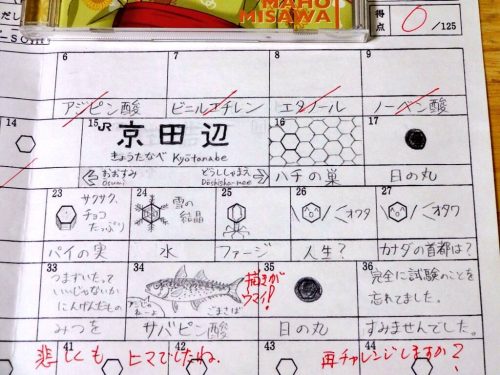 MAHO
MISAWA
得点
0 /125
6
7
8
9
アジピン酸
ビニルエチレン
エタノール
ノーベン酸
14
15 JR
京田辺
きょうたなべ Kyōtanabe
おおすみ
Osumi
どうししゃまえ
Dōshisha-mae
16
ハチの巣
17
日の丸
23
サクサク、
チョコ
たっぷり
パイの実
24
雪の
結晶
水
25
ファージ
26
オワタ
人生?
27
オタワ
カナダの首都は?
33
つまずいたって
いいじゃないか
にんげんだもの
みつを
34
ごまさば
サバピン酸
描きが
ウマイ!
35
日の丸
36
完全に試験のことを
忘れてました。
すみませんでした。
悲しくも ヒマでしたね.
再チャレンジしますか?
41
42
43
44